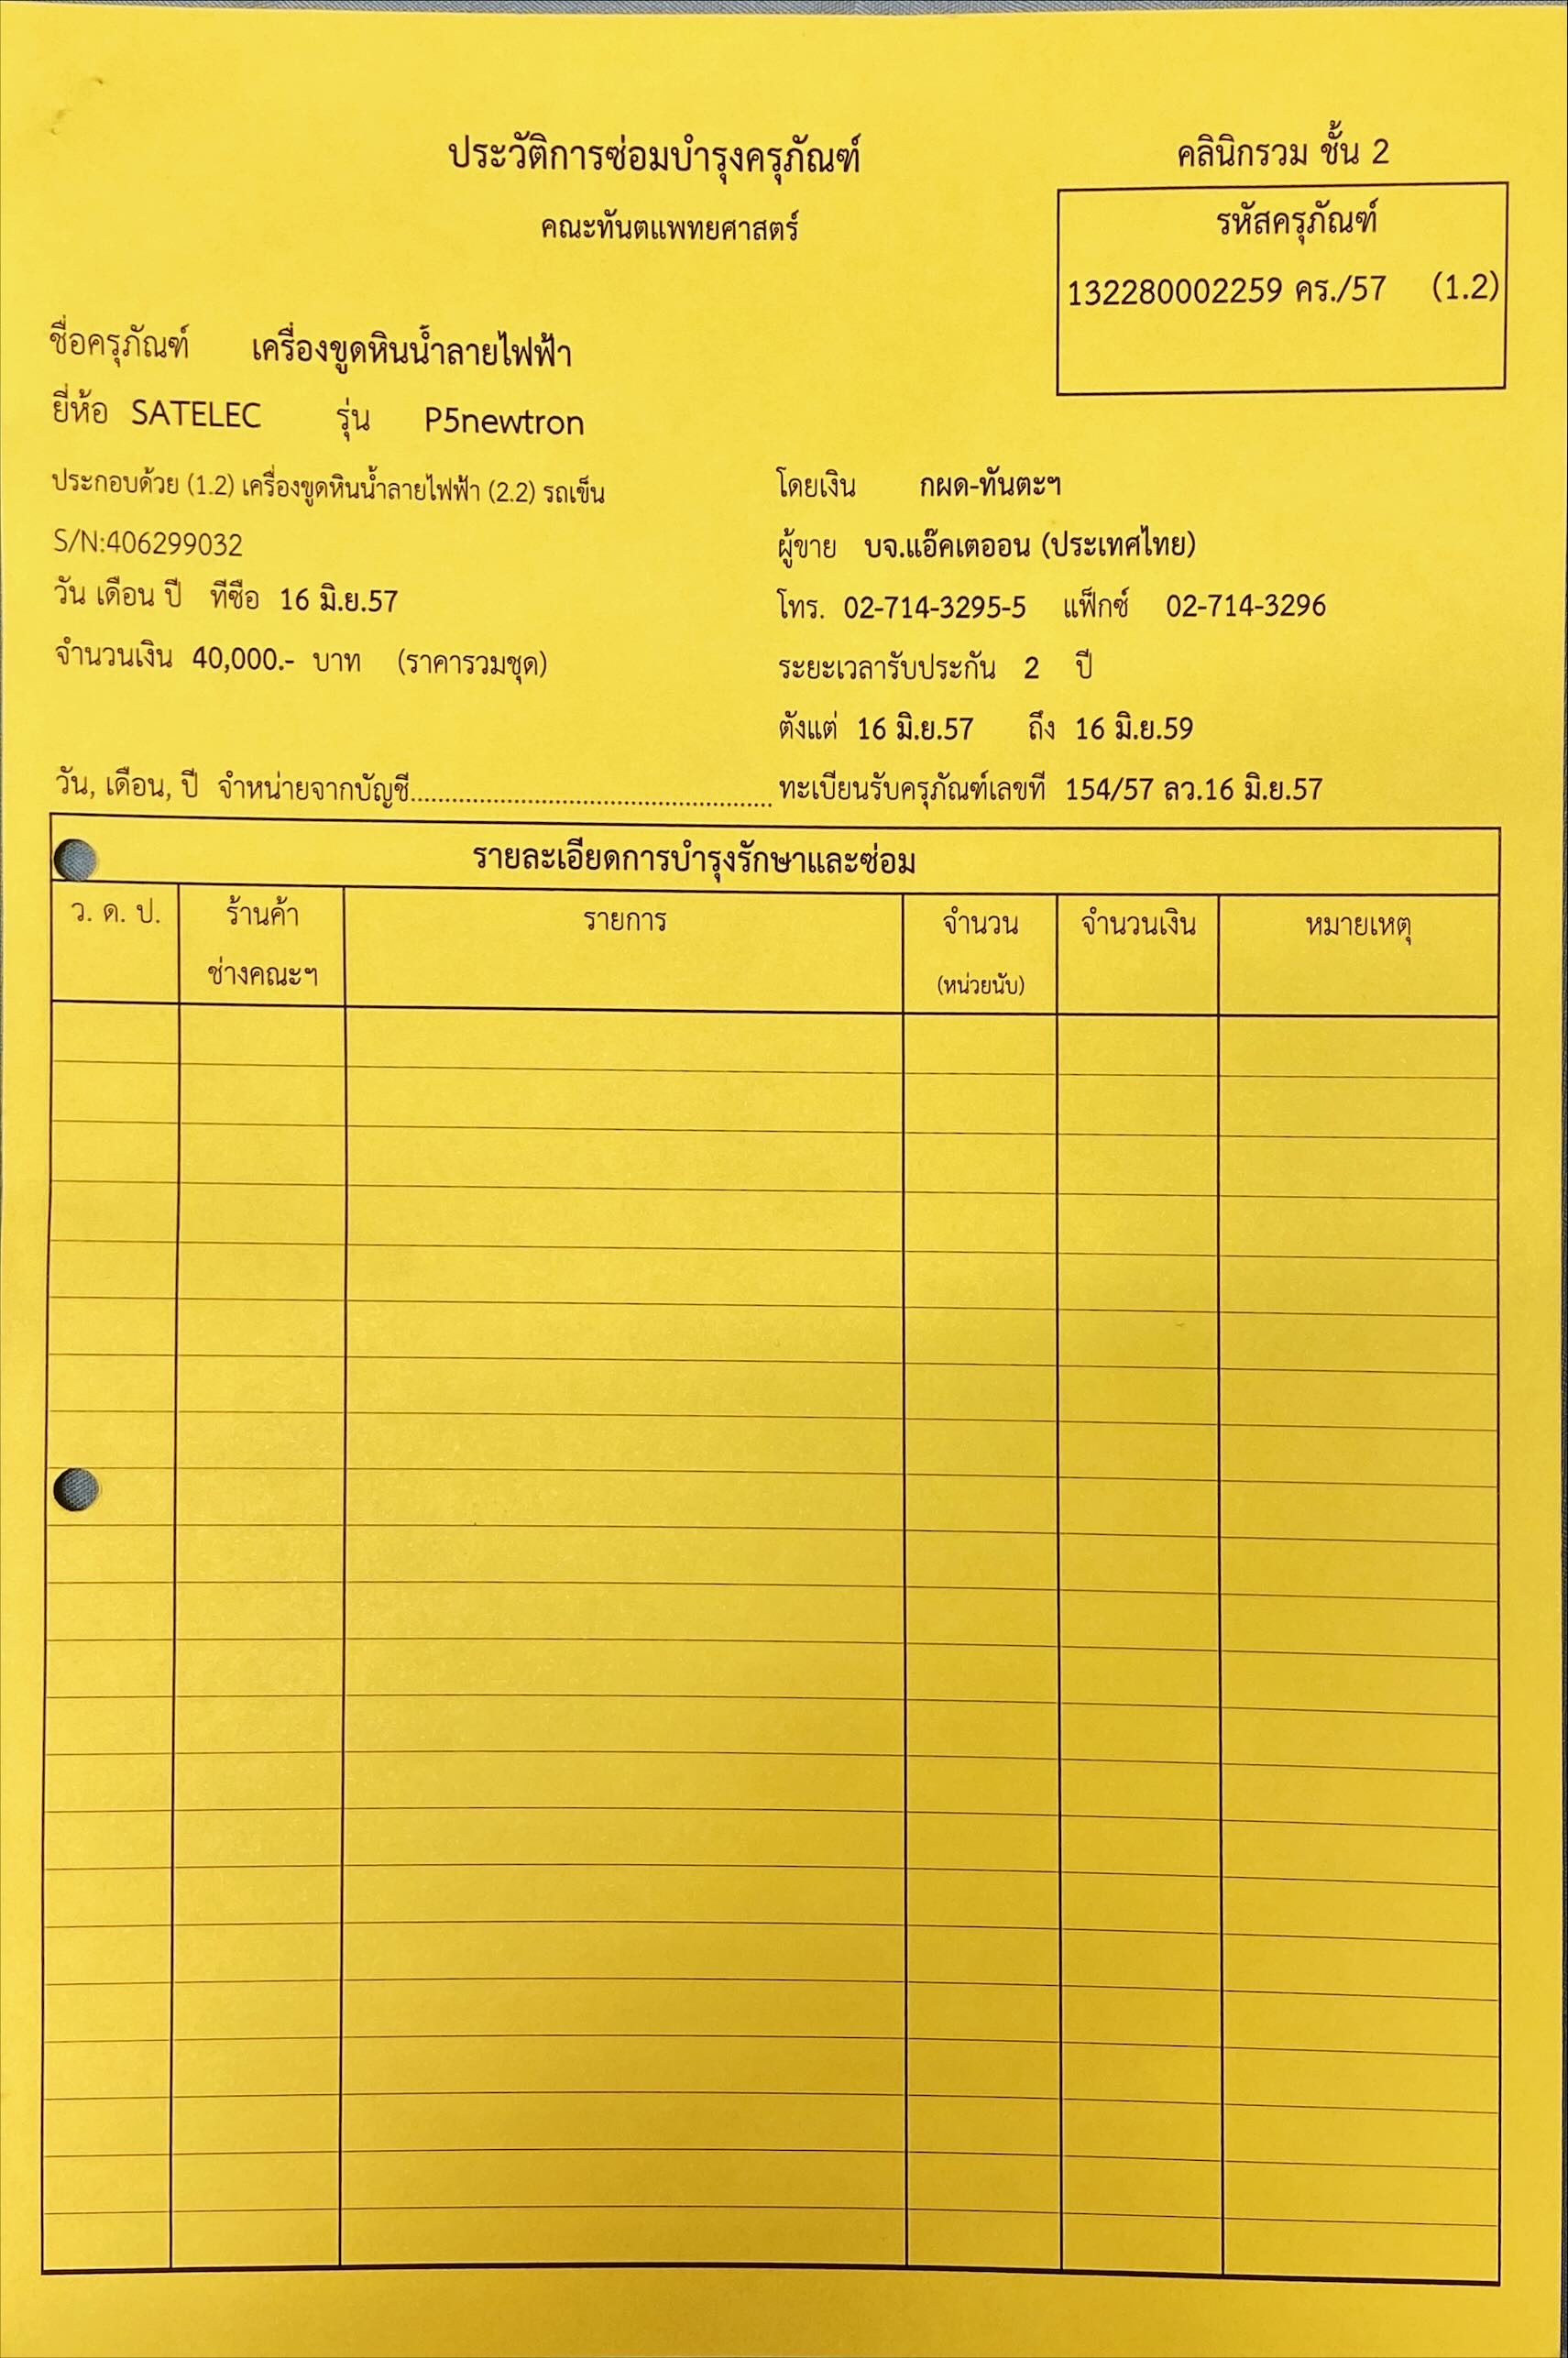 ประวัติการซ่อมบำรุงครุภัณฑ์
คลินิกรวม ชั้น 2
คณะทันตแพทยศาสตร์
รหัสครุภัณฑ์
132280002259 คร./57 (1.2)
ชื่อครุภัณฑ์ เครื่องขูดหินน้ำลายไฟฟ้า
ยี่ห้อ SATELEC รุ่น P5newtron
ประกอบด้วย (1.2) เครื่องขูดหินน้ำลายไฟฟ้า (2.2) รถเข็น
โดยเงิน กผด-ทันตะฯ
S/N:406299032
ผู้ขาย บจ.แอ๊คเตออน (ประเทศไทย)
วัน เดือน ปี ที่ซื้อ 16 มิ.ย.57
โทร. 02-714-3295-5 แฟ็กซ์ 02-714-3296
จำนวนเงิน 40,000.- บาท (ราคารวมชุด)
ระยะเวลารับประกัน 2 ปี
ตั้งแต่ 16 มิ.ย.57 ถึง 16 มิ.ย.59
วัน, เดือน, ปี จำหน่ายจากบัญชี.......................................................
ทะเบียนรับครุภัณฑ์เลขที่ 154/57 ลว.16 มิ.ย.57
รายละเอียดการบำรุงรักษาและซ่อม
ว. ด. ป. ร้านค้า รายการ จำนวน จำนวนเงิน หมายเหตุ
ช่างคณะฯ (หน่วยนับ)